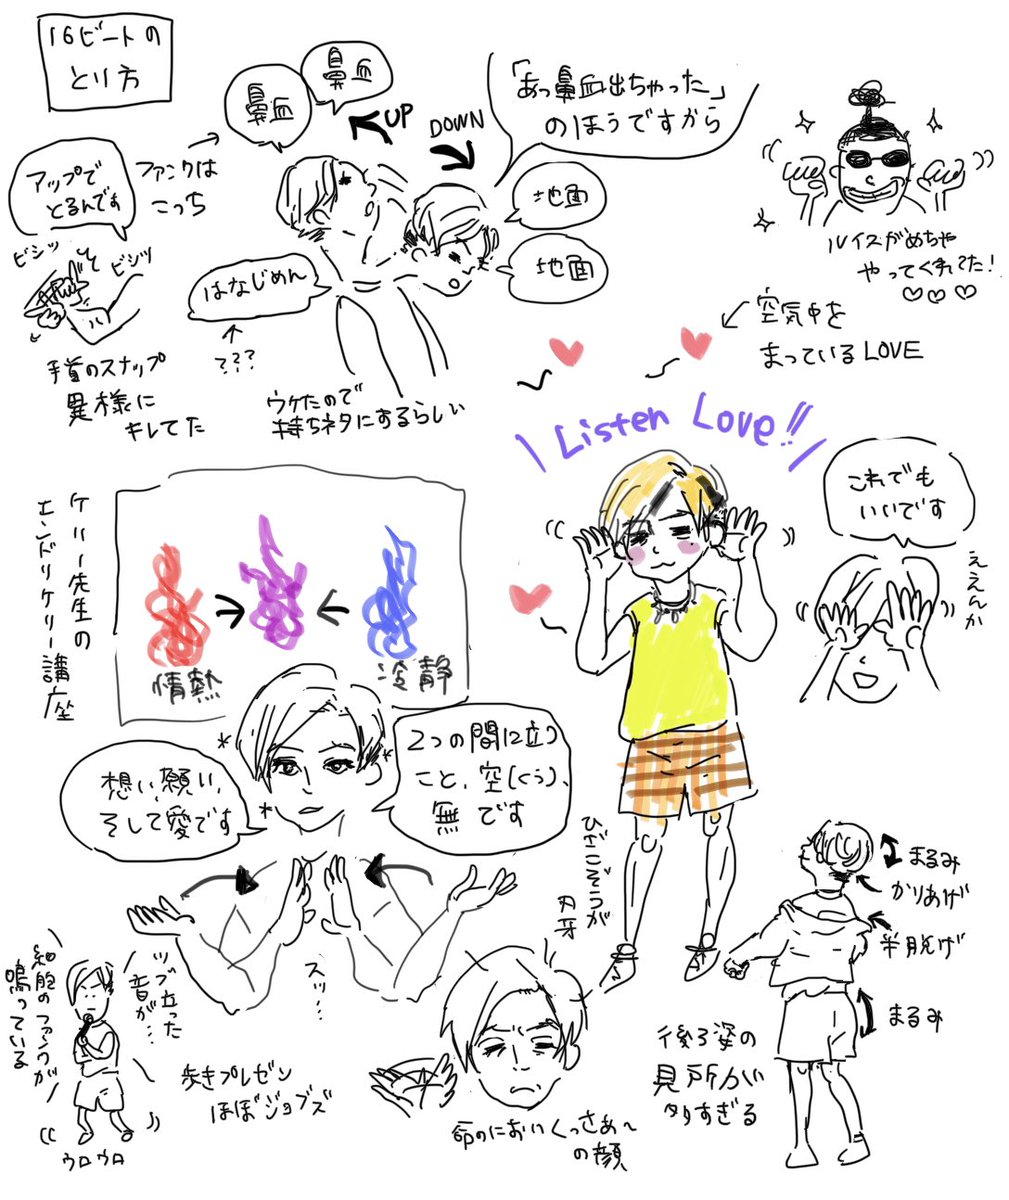 16ビートの
とり方
鼻血
鼻血
「あっ鼻血出ちゃった」
のほうですから
UP
DOWN
アップで
とるんです
ファンクは
こっち
地面
地面
はなじめん
???
ビシッ
ビシッ
手首のスナップ
異様に
キレてた
ウケたので
持ちネタにするらしい
ルイスがめちゃ
やってくれてた!
空気中を
まっているLOVE
Listen Love!!
これでも
いいです
ええんか
ケリー先生の
エンドリケリー講座
情熱
冷静
想い、願い、
そして愛です
2つの間に立つ
こと、空(くう)、
無です
スッ…
ひざこぞうが
刃牙
ツブ立った
音が…
細胞のファンクが
鳴っている
ウロウロ
歩きプレゼン
ほぼジョブズ
命のにおいくっさあ〜
の顔
まるみ
かりあげ
半脱げ
まるみ
後ろ姿の
見所が
多すぎる